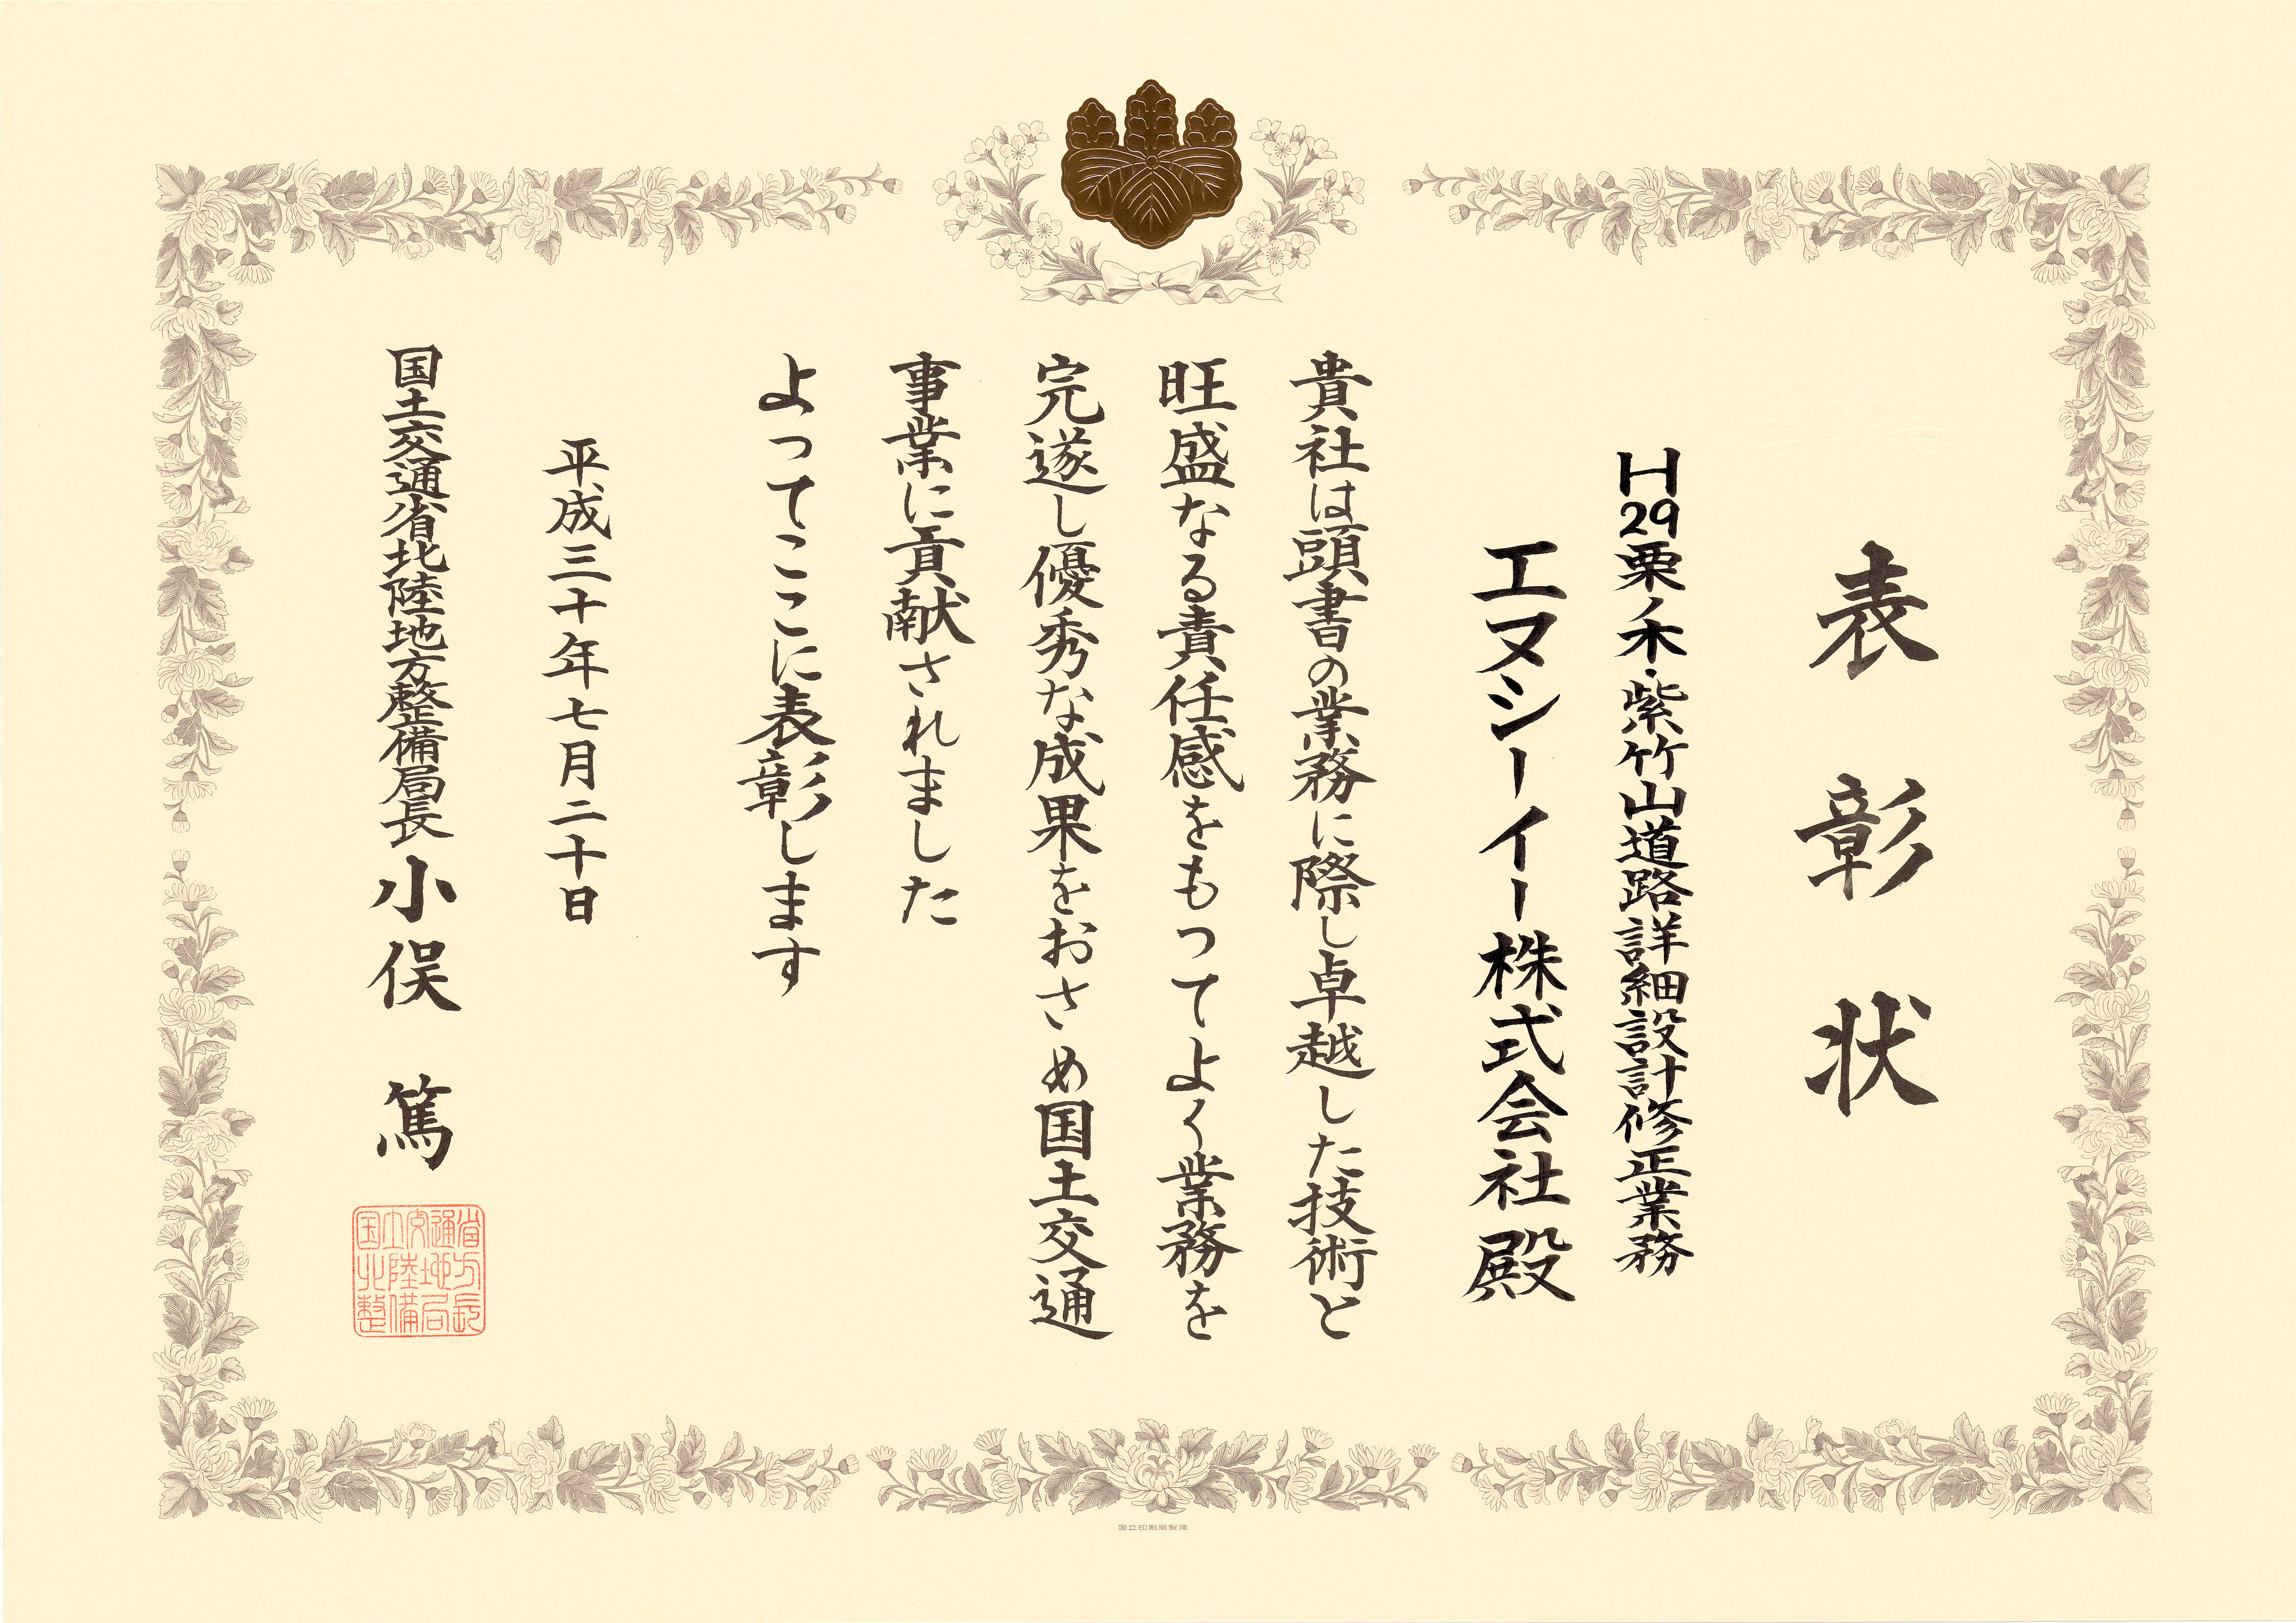 表彰状
H29栗ノ木・紫竹山道路詳細設計修正業務
エヌシーイー株式会社殿
貴社は頭書の業務に際し卓越した技術と
旺盛なる責任感をもつてよく業務を
完遂し優秀な成果をおさめ国土交通
事業に貢献されました
よってここに表彰します
平成三十年七月二十日
国土交通省北陸地方整備局長 小俣 篤
国土交通省
北陸地方
整備局長
国立印刷局製造